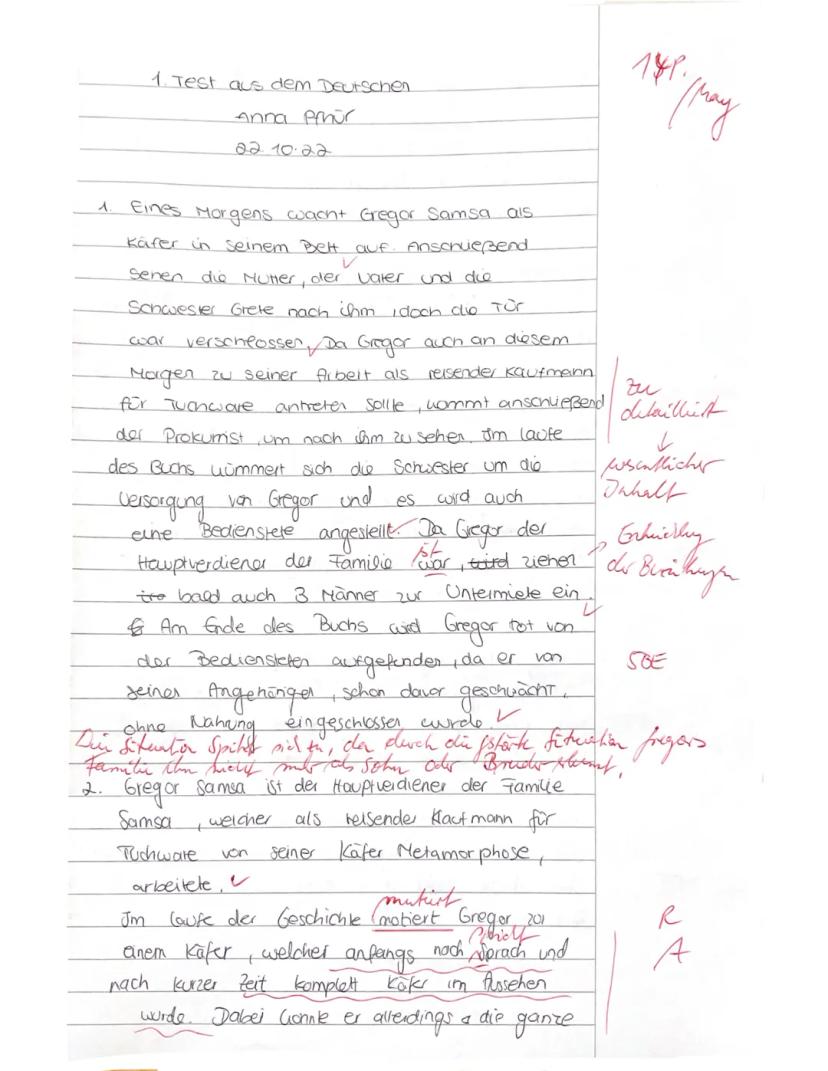 1. Test aus dem Deutschen
Anna
22.10.22
1. Eines Morgens wacht Gregor Samsa als
Käfer in seinem Bett auf. Anschließend
sehen die Mutter, der Vater und die
Schwester Grete nach ihm, doch die Tür
war verschlossen. Da Gregor auch an diesem
Morgen zu seiner Arbeit als reisender Kaufmann
für Tuchware antreten sollte, kommt anschließend
zu
detailliert
der Prokurist, um nach ihm zu sehen. Im laufe
des Buchs kümmert sich die Schwester um die
wesentlicher
Inhalt
Versorgung von Gregor und es wird auch
eine Bedienstete angestellt. Da Gregor der
Entwicklung
der Beziehungen
ist
Hauptverdiener der Familie war, wird ziehen
bald auch 3 Männer zur Untermiete ein.
Am Ende des Buchs wird Gregor tot von
der Bediensteten aufgefunden, da er von
seinen Angehöngen, schon davor geschwächt,
ohne Nahrung eingeschlossen wurde
Die Situation spitzt sich zu, da durch die Situation Gregors
Familie ihn nicht mehr als Sohn oder Bruder
2. Gregor Samsa ist der Hauptverdiener der Familie
Samsa, welcher als reisender Kaufmann für
Tuchware von seiner Käfer Metamorphose,
arbeitete.
mutiert
Im laufe der Geschichte motiert Gregor zu
R
einem Käfer, welcher anfangs noch Sprach und
A
nach kurzer Zeit komplett Käfer im Aussehen
wurde. Dabei konnte er allerdings die ganze